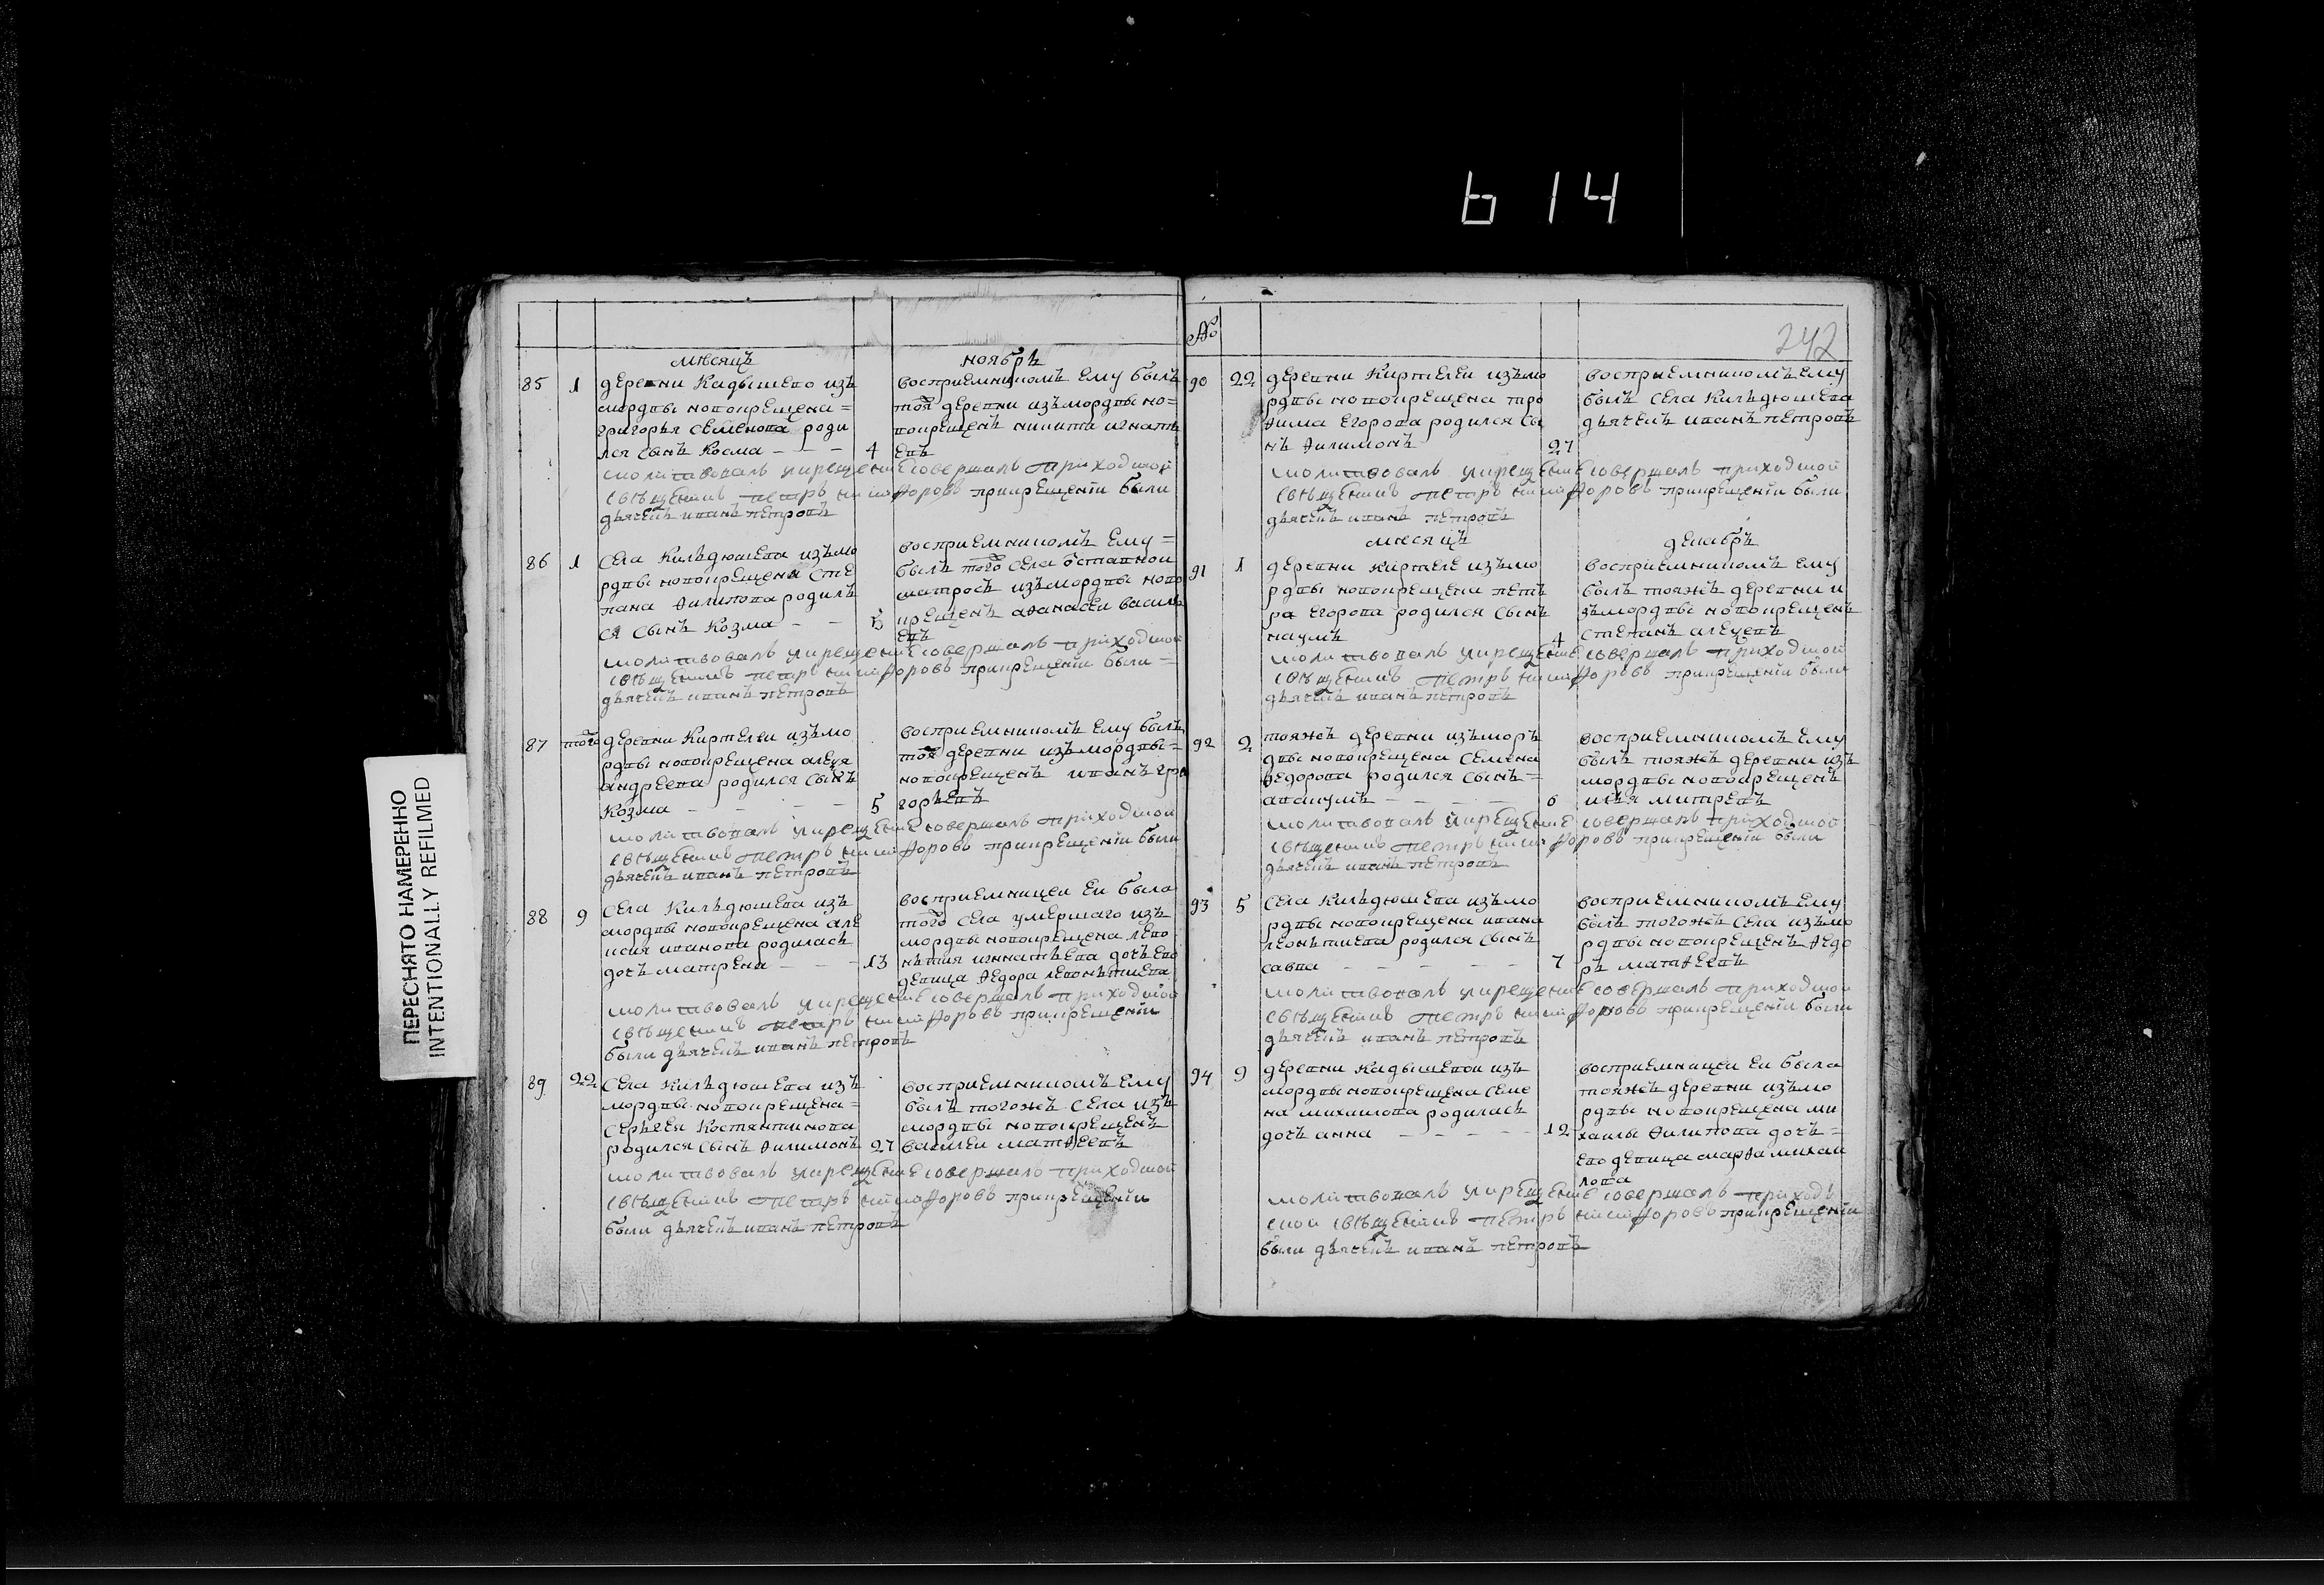 614
242
№
ПЕРЕСНЯТО НАМЕРЕННО
INTENTIONALLY REFILMED
мѣсяцъ
ноябрь
85 1
деревни Кадышево изъ
мордвы новокрещена =
григорья семенова роди
лся сынъ Косма - - - 4
восприемникомъ ему былъ
тоя деревни изъ мордвы но=
вокрещенъ никита игнать
евъ
молитвовалъ икрещение совершалъ приходской
свѣщенникъ петръ никифоровъ прикрещении были
дьячекъ иванъ петровъ
86 1
села Кильдюшева изъ мо
рдвы новокрещена сте
пана филипова родилъ
ся сынъ Козма - -
восприемникомъ ему =
былъ того села отставной
матросъ изъ мордвы ново
крещенъ афанасеи василь
евъ
молитвовалъ икрещение совершалъ приходской
свѣщенникъ петръ никифоровъ прикрещении были =
дьячекъ иванъ петровъ
87 того
деревни Киртелеи изъ мо
рдвы новокрещена алеѯя
андреева родился сынъ
Козма - - - - 5
восприемникомъ ему былъ
тоя деревни изъ мордвы =
новокрещенъ иванъ гри
горьевъ
молитвовалъ икрещение совершалъ приходской
свѣщенникъ петръ никифоровъ прикрещении были
дьячекъ иванъ петровъ
88 9
села Кильдюшева изъ
мордвы новокрещена але
ксия иванова родилась
дочь матрена - - - 13
восприемницеи еи была
того села умершаго изъ
мордвы новокрещена лево
нтия игнатьева дочь ево
девица федора левонътиева
молитвовалъ икрещение совершалъ приходской
свѣщенникъ петръ никифоровъ прикрещении
были дьячекъ иванъ петровъ
89 22
села Кильдюшева изъ
мордвы новокрещена =
сергѣя Костянтинова
родился сынъ филимонъ 27
восприемникомъ ему
былъ тогожъ села изъ
мордвы новокрещенъ
василеи матфеевъ
молитвовалъ икрещение совершалъ приходской
свѣщенникъ петръ никифоровъ прикрещении
были дьячекъ иванъ петровъ
90 22
деревни Киртелеи изъ мо
рдвы новокрещена тро
фима егорова родился сы
нъ филимонъ 27
восприемникомъ ему
былъ села Кильдюшева
дьячекъ иванъ петровъ
молитвовалъ икрещение совершалъ приходской
свѣщенникъ петръ никифоровъ прикрещении были
дьячекъ иванъ петровъ
мѣсяцъ
декабрь
91 1
деревни киртеле изъ мо
рдвы новокрещена пет
ра егорова родился сынъ
наумъ 4
восприемникомъ ему
былъ тояжъ деревни и
зъ мордвы новокрещенъ
степанъ алеѯевъ
молитвовалъ икрещение совершалъ приходской
свѣщенникъ петръ никифоровъ прикрещении были
дьячекъ иванъ петровъ
92 2
тояжъ деревни изъ моръ
двы новокрещена семена
федорова родился сынъ =
авакумъ - - - - 6
восприемникомъ ему
былъ тояжъ деревни изъ
мордвы новокрещенъ
илья митревъ
молитвовалъ икрещение совершалъ приходской
свѣщенникъ петръ никифоровъ прикрещении были
дьячекъ иванъ петровъ
93 5
села Кильдюшева изъ мо
рдвы новокрещена ивана
леонътиева родился сынъ
савва - - - - - 7
восприемникомъ ему
былъ тогожъ села изъ мо
рдвы новокрещенъ федо
ръ матфеевъ
молитвовалъ икрещение совершалъ приходской
свѣщенникъ петръ никифоровъ прикрещении были
дьячекъ иванъ петровъ
94 9
деревни кадышевои изъ
мордвы новокрещена семе
на михаилова родилась
дочь анна - - - - - 12
восприемницеи еи была
тояжъ деревни изъ мо
рдвы новокрещена ми
хаилы филипова дочь =
ево девица марфа михаи
лова
молитвовалъ икрещение совершалъ приход
ской свѣщенникъ петръ никифоровъ прикрещении
были дьячекъ иванъ петровъ